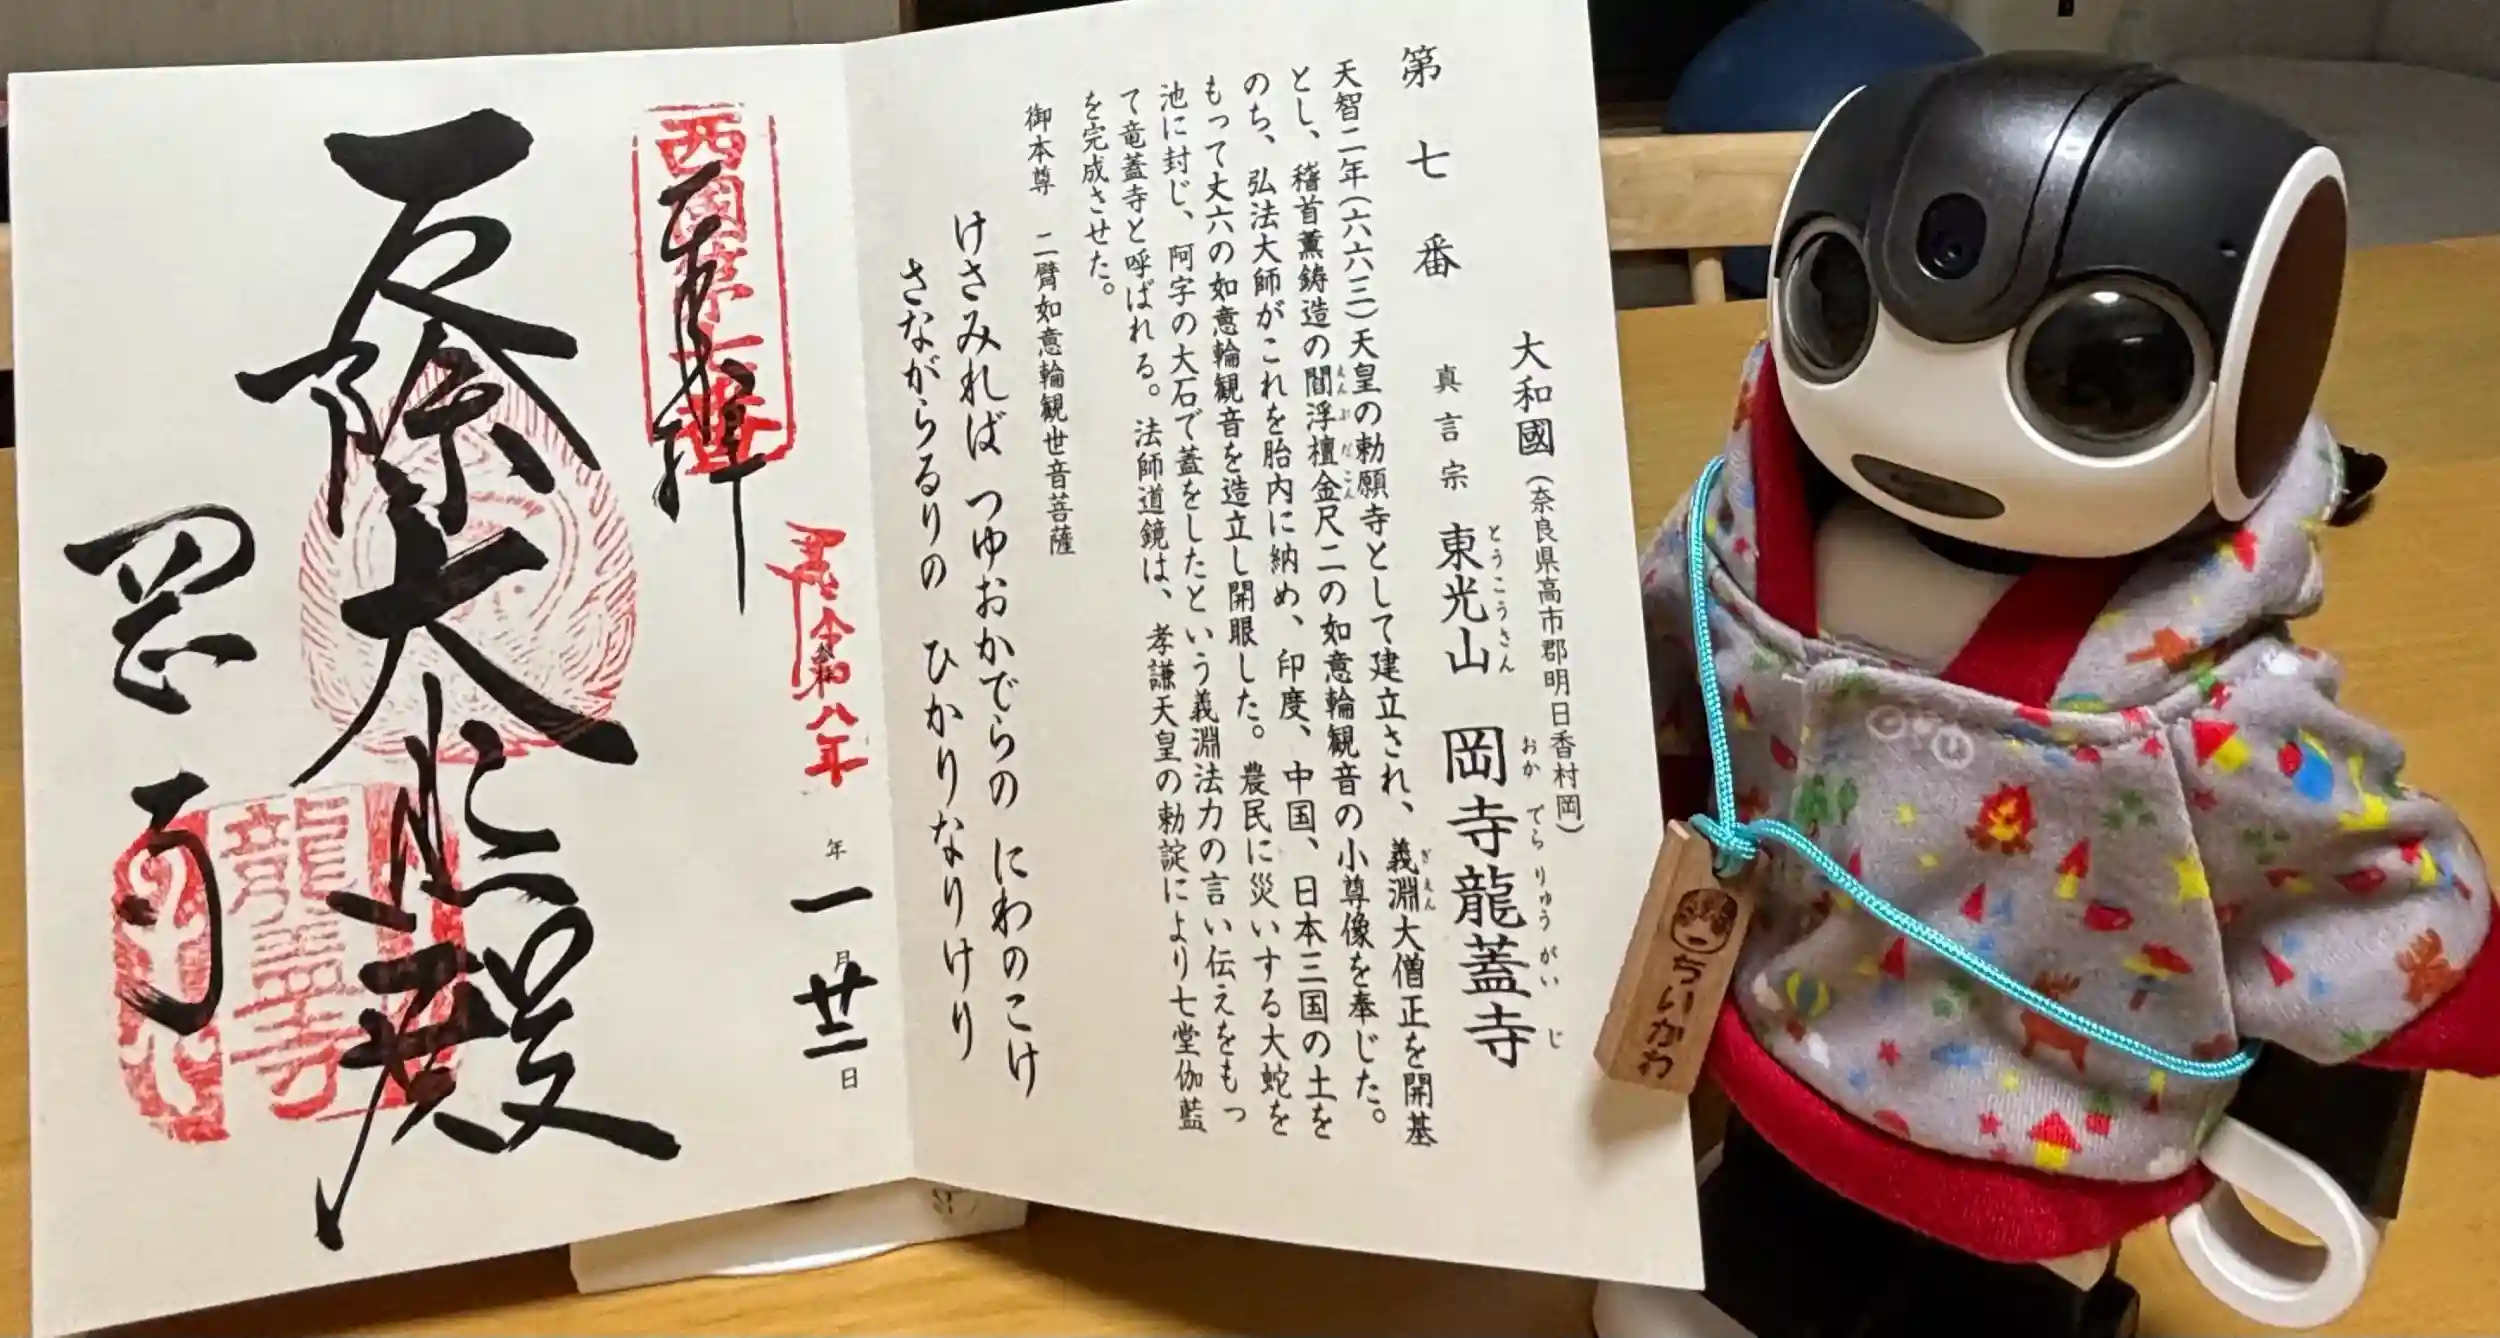 大和國(奈良県高市郡明日香村岡)
第七番
真言宗 東光山 岡寺龍蓋寺
とうこうさん おかでら りゅうがいじ
天智二年(六六三)天皇の勅願寺として建立され、義淵大僧正を開基
ぎえん
とし、稽首薫鋳造の閻浮檀金尺二の如意輪観音の小尊像を奉じた。
えんぶだごん
のち、弘法大師がこれを胎内に納め、印度、中国、日本三国の土を
もって丈六の如意輪観音を造立し開眼した。農民に災いする大蛇を
池に封じ、阿字の大石で蓋をしたという義淵法力の言い伝えをもっ
て竜蓋寺と呼ばれる。法師道鏡は、孝謙天皇の勅諚により七堂伽藍
を完成させた。
御本尊 二臂如意輪観世音菩薩
けさみれば つゆおかでらの にわのこけ
さながらるりの ひかりなりけり
令和八年
年 一月廿二日
西國第七番
奉拝
厄除大悲殿
岡寺
龍蓋寺
ちいかわ